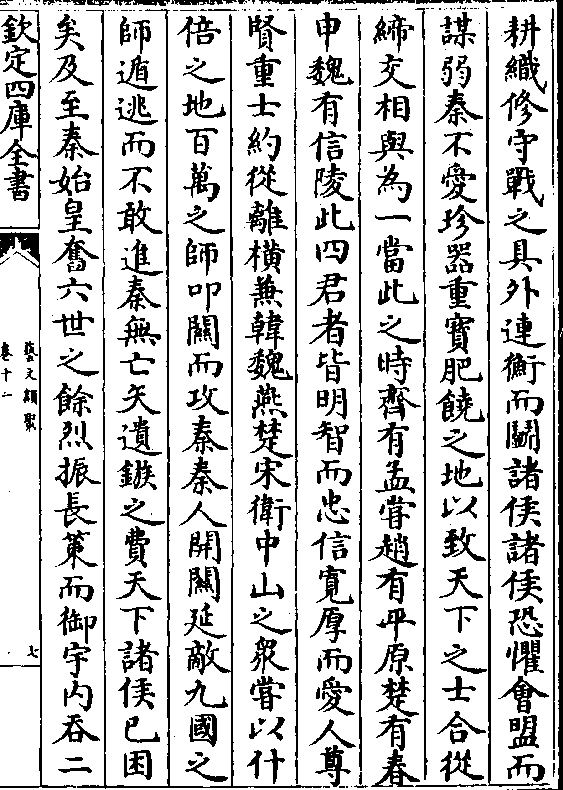 耕織修守戰之具外連衡而鬭諸侯諸侯恐懼會盟而
謀弱秦不愛珍器重寶肥饒之地以致天下之士合從
締交相與為一當此之時齊有孟嘗趙有平原楚有春
申魏有信陵此四君者皆明智而忠信寛厚而愛人尊
賢重士約從離橫兼韓魏燕楚宋衛中山之衆嘗以什
倍之地百萬之師叩關而攻秦秦人開關延敵九國之
師遁逃而不敢進秦無亡矢遺鏃之費天下諸侯已困
矣及至秦始皇奮六世之餘烈振長策而御宇内吞二
欽定四庫全書
藝文類聚
卷十一
七